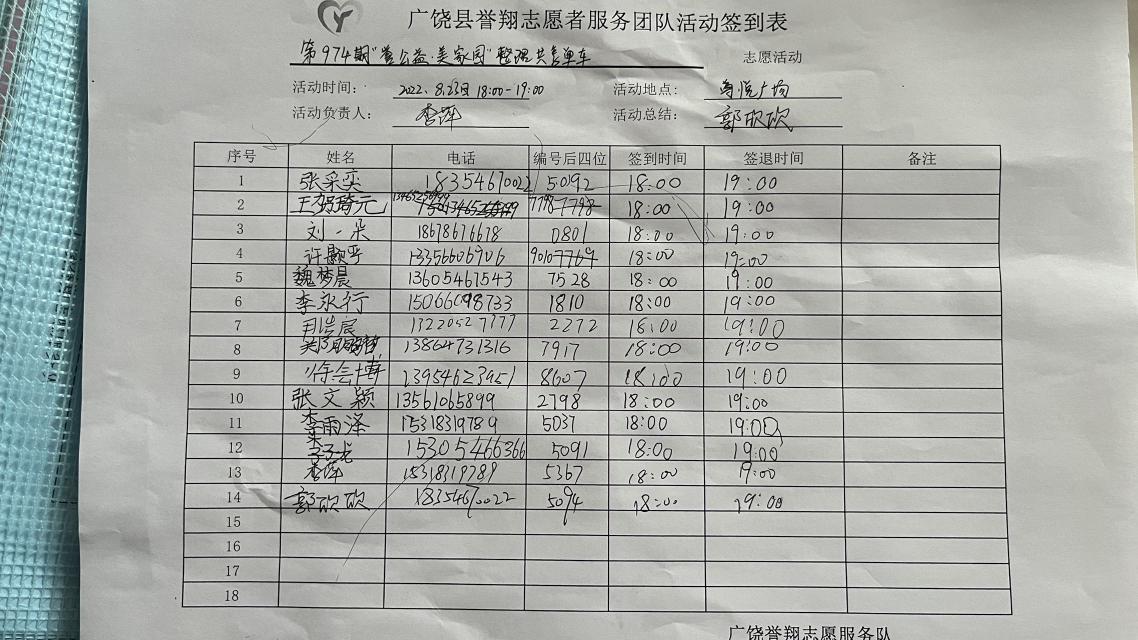 广饶县誉翔志愿者服务团队活动签到表
第974期"誉公益·美家园"整理共享单车 志愿活动
活动时间： 2022.8.23日 18:00-19:00 活动地点： 尚悦广场
活动负责人： 李萍 活动总结： 郭欣欣
序号 姓名 电话 编号后四位 签到时间 签退时间 备注
1 张采奕 18354670022 5092 18:00 19:00
2 18:00 19:00
3 刘一朵 18678676678 0801 18:00 19:00
4 许颢严 13356606906 9010 18:00 19:00
5 魏梦晨 13605467543 7528 18:00 19:00
6 李永行 15066098733 1810 18:00 19:00
7 2272 18:00 19:00
8 13864731316 7917 18:00 19:00
9 徐会博 8607 18:00 19:00
10 张文颖 13561065899 2798 18:00 19:00
11 李雨泽 15318319789 5037 18:00 19:00
12 15305466366 5091 18:00 19:00
13 李萍 15318319789 5367 18:00 19:00
14 郭欣欣 18354670022 5094 18:00 19:00
15
16
17
18
广饶誉翔志愿服务队